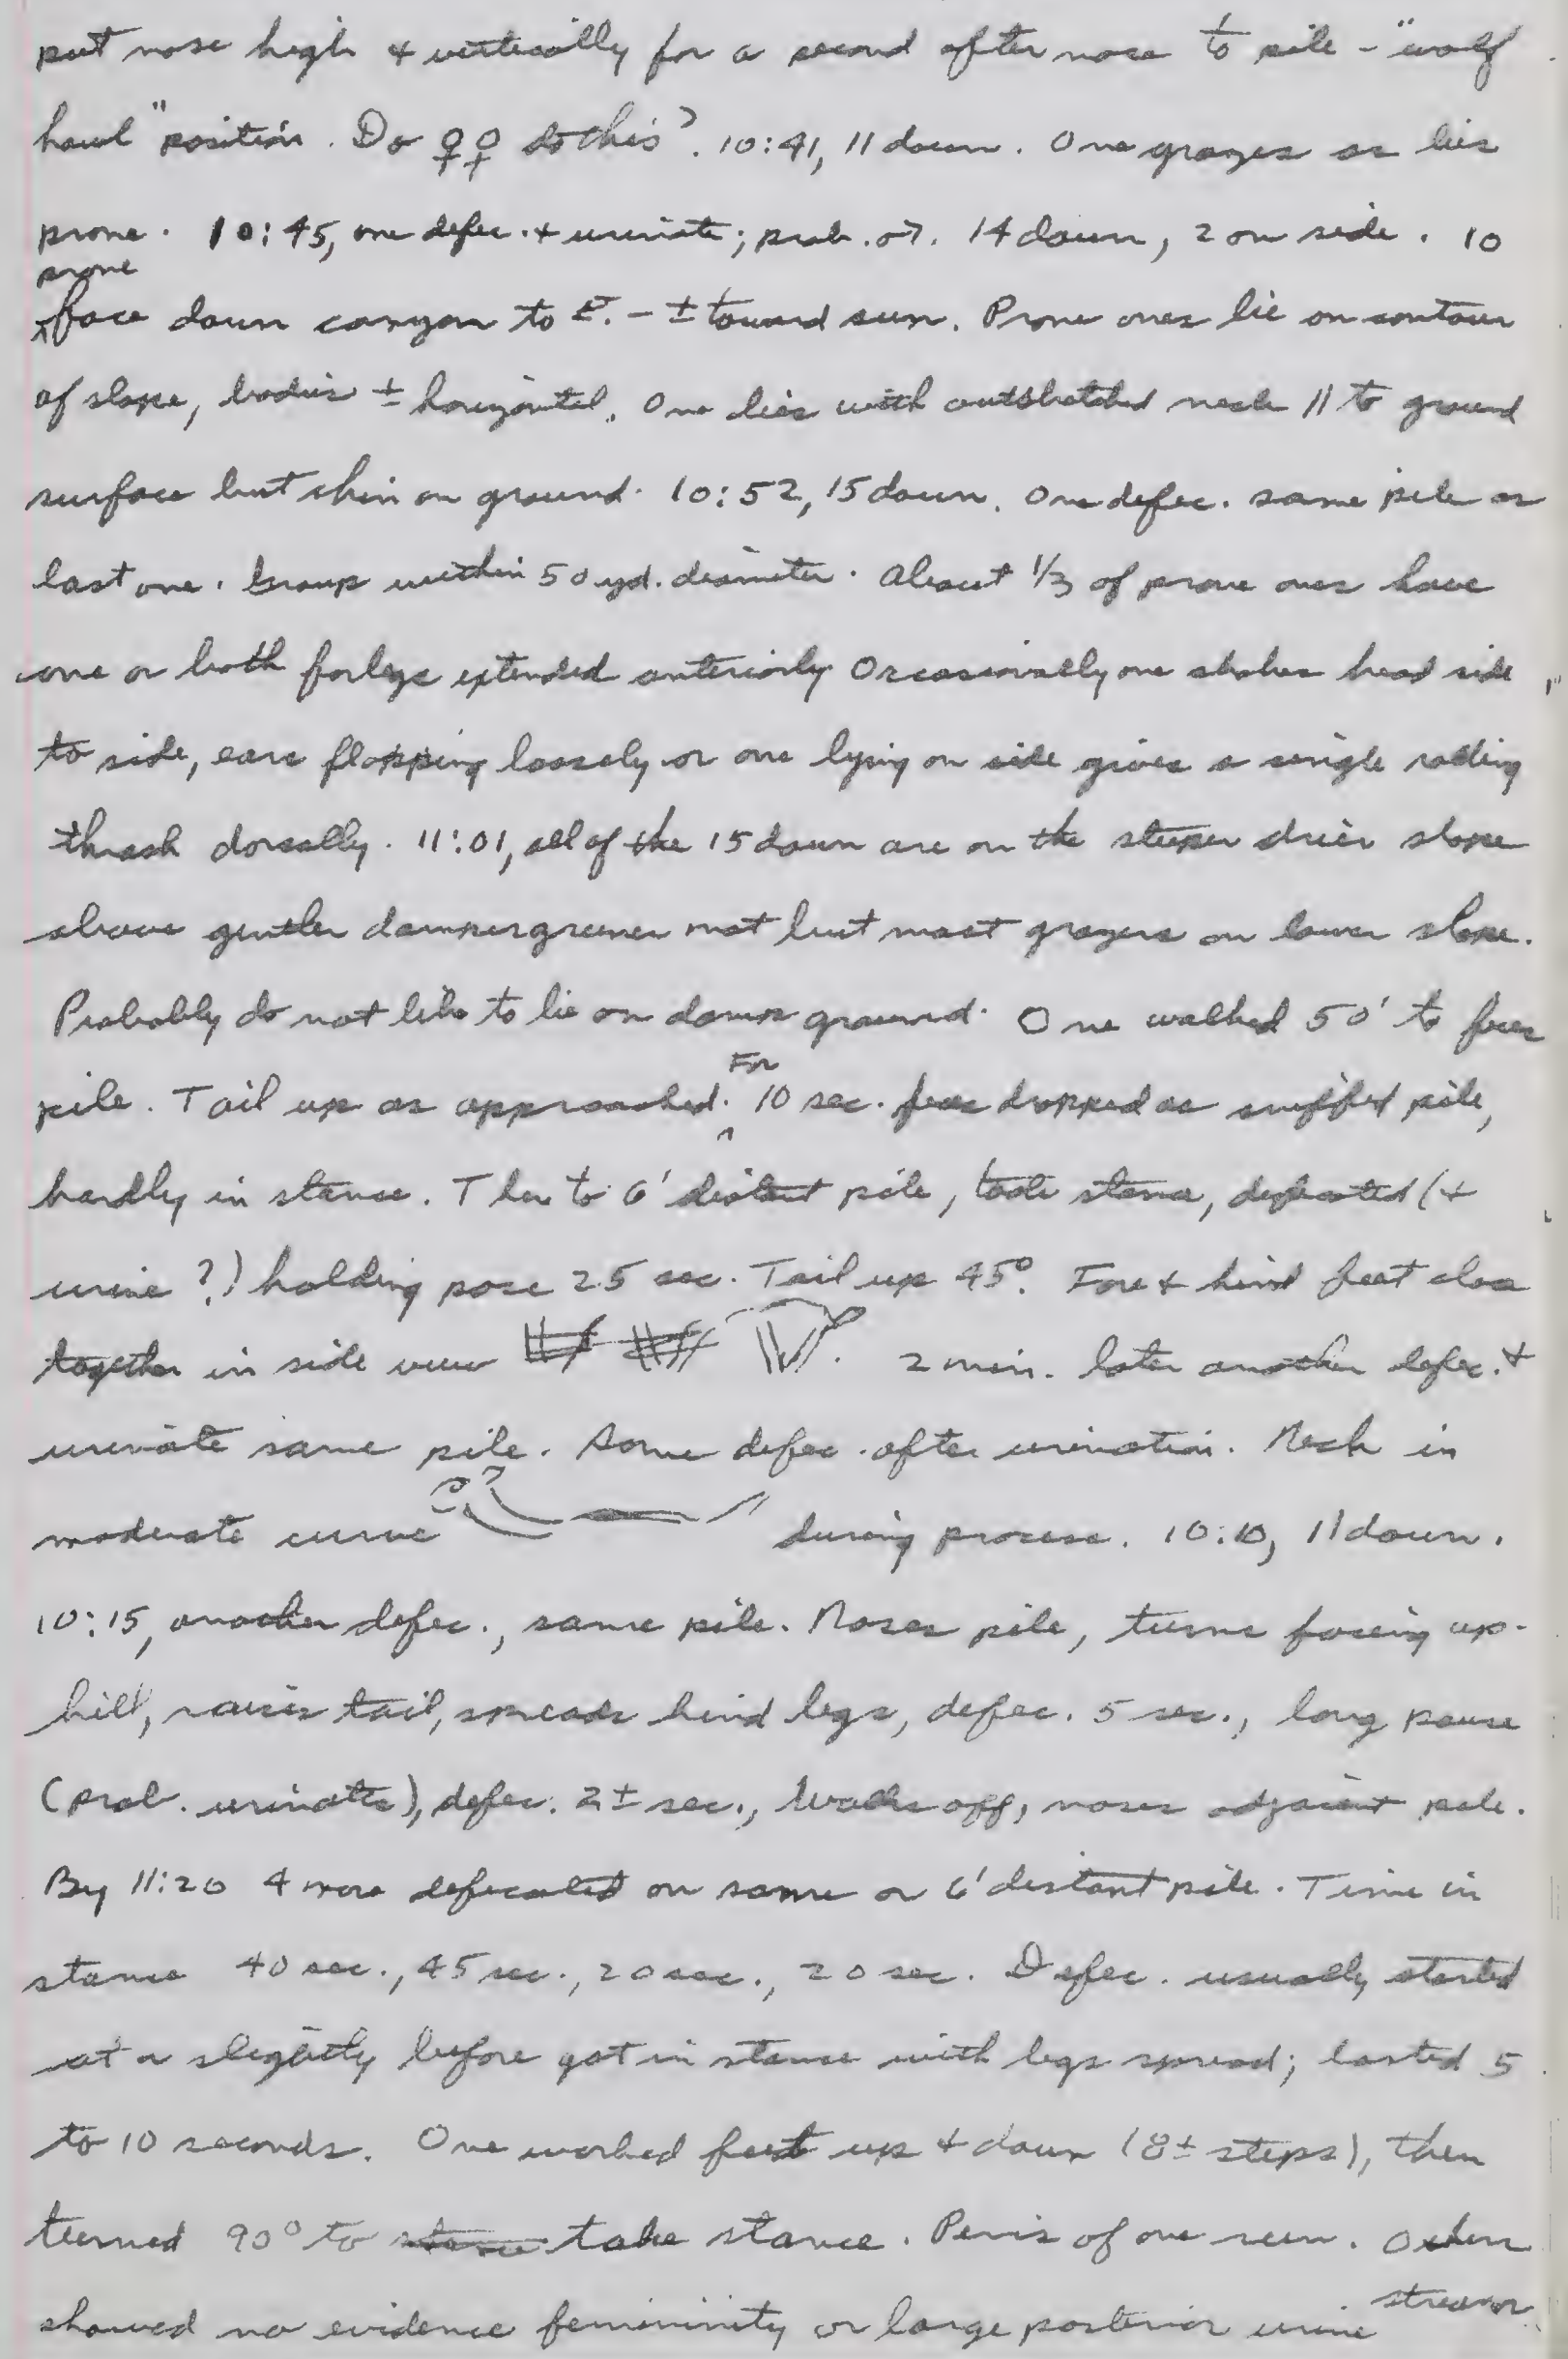 put nose high + vertically for a second after nose to pile - "wolf
howl" position. Do ♀♀ do this? 10:41, 11 down. One grazes as lies
prone. 10:45, one defec. + urinate; prob. ♂. 14 down, 2 on side. 10
prone
face down canyon to E. - ± toward sun. Prone ones lie on contour
of slope, bodies ± horizontal. One lies with outstretched neck || to ground
surface but chin on ground. 10:52, 15 down. One defec. same pile as
last one. Group within 50 yd. diameter. About 1/3 of prone ones have
one or both forlegs extended anteriorly Occasionally one shakes head side
to side, ears flopping loosely or one lying on side gives a single rolling
thrash dorsally. 11:01, all of the 15 down are on the steeper drier slope
above gentler damper greener mat but most grazers on lower slope.
Probably do not like to lie on damp ground. One walked 50' to feces
pile. Tail up as approached. For 10 sec. feces dropped as sniffed pile,
hardly in stance. Then to 6' distant pile, took stance, defecated (+
urine?) holding pose 25 sec. Tail up 45°. Fore + hind feet close
together in side view. 2 min. later another defec. +
urinate same pile. Some defec. after urination. Neck in
moderate curve during process. 10:10, 11 down.
10:15, another defec., same pile. Noses pile, turns facing up-
hill, raises tail, spreads hind legs, defec. 5 sec., long pause
(prob. urinates), defec. 2± sec., walks off, noses adjacent pile.
By 11:20 4 more defecated on same or 6' distant pile. Time in
stance 40 sec., 45 sec., 20 sec., 20 sec. Defec. usually started
at or slightly before got in stance with legs spread; lasted 5
to 10 seconds. One worked feet up + down (8± steps), then
turned 90° to stance take stance. Penis of one seen. Others
showed no evidence femininity or large posterior urine stream